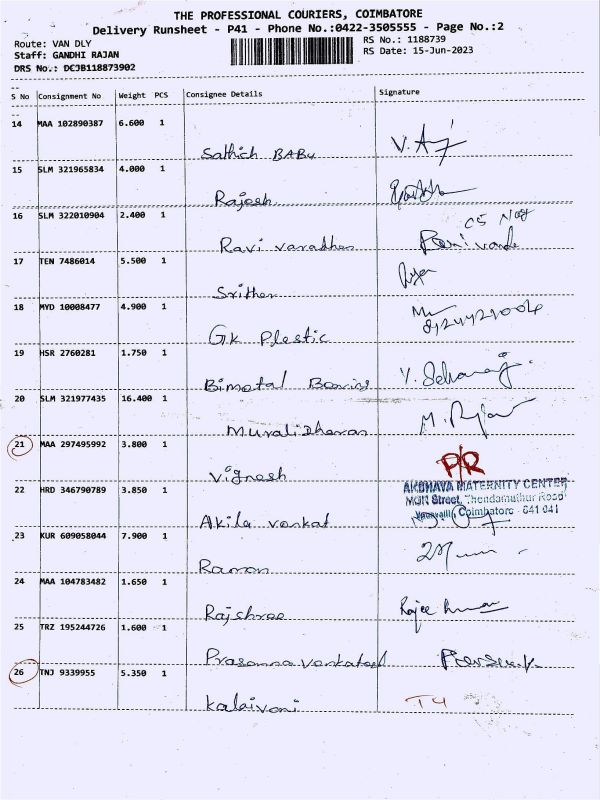 THE PROFESSIONAL COURIERS, COIMBATORE
Delivery Runsheet - P41 - Phone No.:0422-3505555 - Page No.:2
Route: VAN DLY RS No.: 1188739
Staff: GANDHI RAJAN RS Date: 15-Jun-2023
DRS No.: DCJB118873902
S No Consignment No Weight PCS Consignee Details Signature
14 MAA 102890387 6.600 1
Sathich BABu
15 SLM 321965834 4.000 1
Rajesh
16 SLM 322010904 2.400 1
Ravi varadhan
17 TEN 7486014 5.500 1
Srither
18 MYD 10008477 4.900 1
GK Plestic
19 HSR 2760281 1.750 1
Bimetal
20 SLM 321977435 16.400 1
Muralidharan
21 MAA 297495992 3.800 1
PR
Vignesh
AKSHAYA MATERNITY CENTER
22 HRD 346790789 3.850 1
MGR Street, Thondamuthur Road
Coimbatore - 641 041
Akila venkat
23 KUR 609058044 7.900 1
Raman
24 MAA 104783482 1.650 1
Rajshree
25 TRZ 195244726 1.600 1
Prasanna
26 TNJ 9339955 5.350 1
Kalaivani